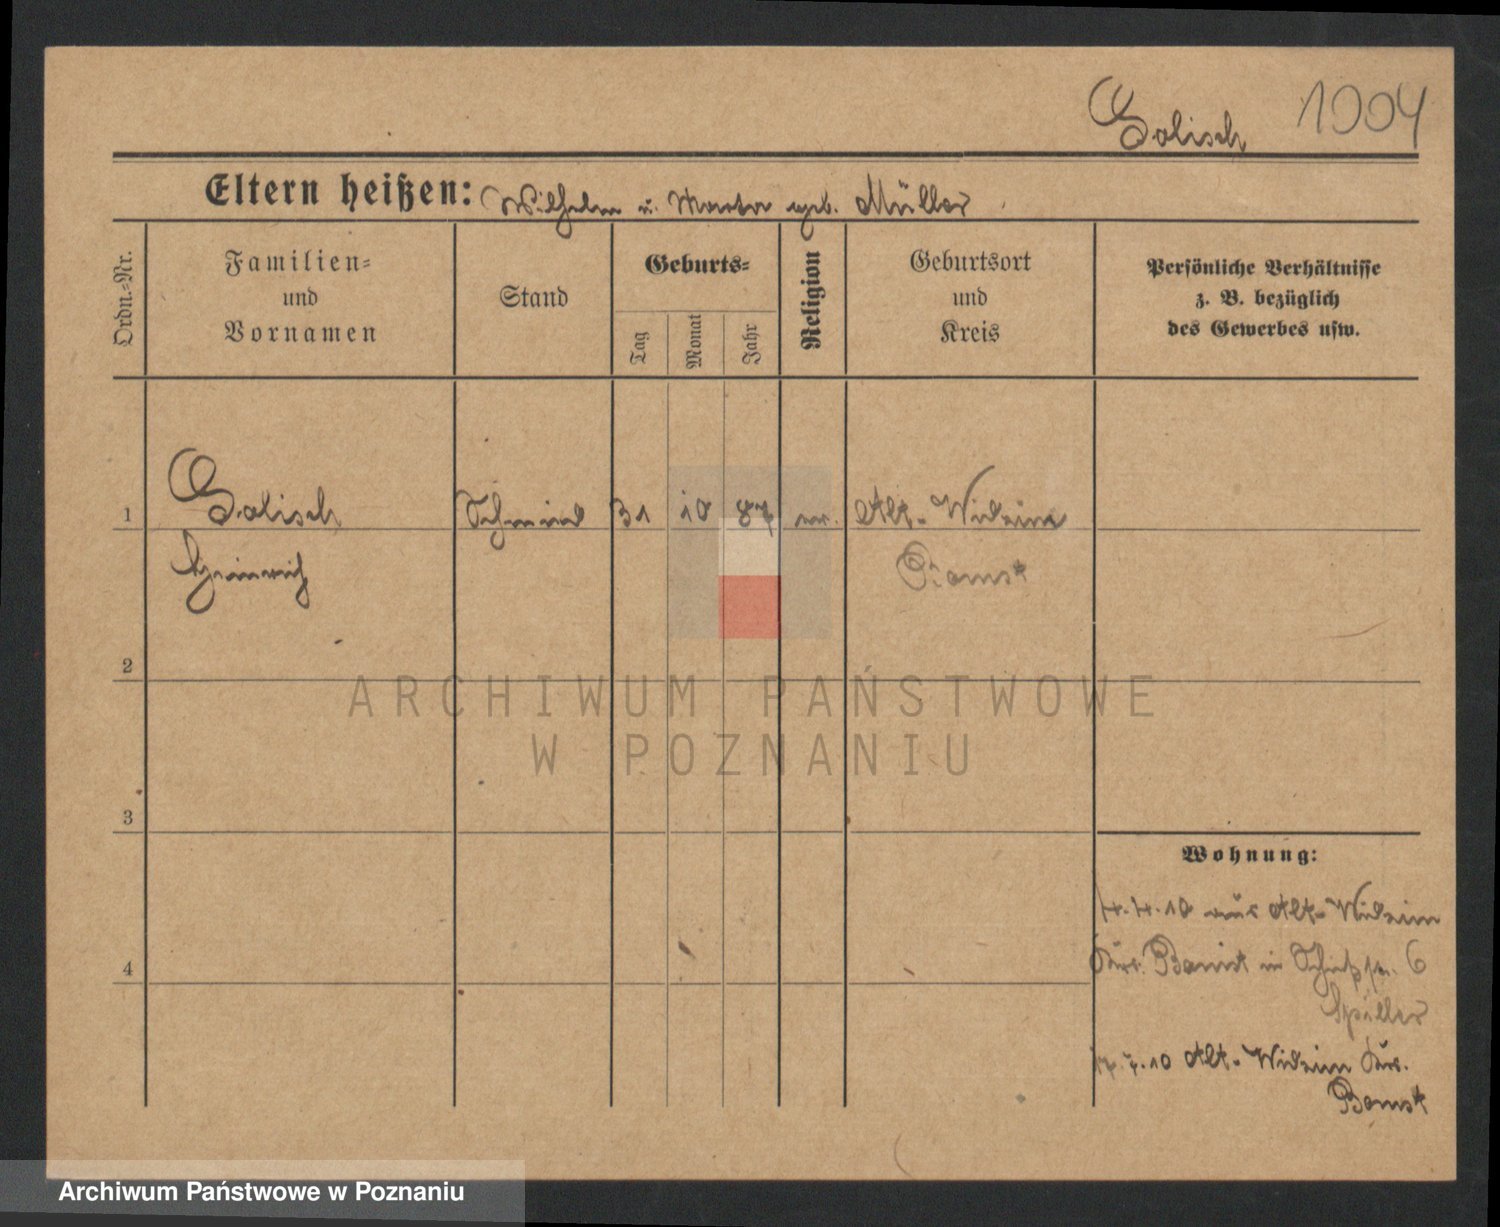 Golisch 1004
Eltern heißen: Wilhelm u. Martha geb. Müller
Ordn.-Nr.
Familien-
und
Vornamen
Stand
Geburts-
Tag
Monat
Jahr
Religion
Geburtsort
und
Kreis
Persönliche Verhältnisse
z. B. bezüglich
des Gewerbes usw.
1 Golisch Schmied 31 10 87 Alt-Widzim
Heinrich Bomst
2
ARCHIWUM PAŃSTWOWE
W POZNANIU
3
Wohnung:
4.4.10 aus Alt-Widzim
4 Krs. Bomst in 6
17.7.10 Alt-Widzim Krs.
Bomst
Archiwum Państwowe w Poznaniu